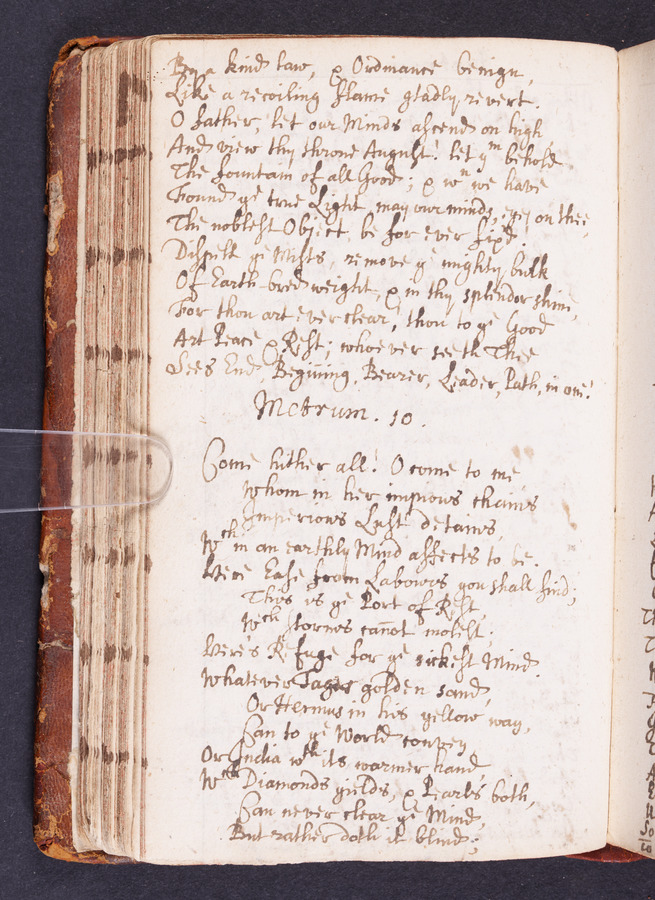 By a kind law, & Ordinance benign,
Like a recoiling flame gladly revert.
O father, let our Minds ascend on high
And view thy throne August! let ym behold
The fountain of all Good; & wn we have
Found ye true Light, may our minds, eyes on thee,
The noblest Object, be for ever fix'd.
Dispell ye Mists, remove ye mighty bulk
Of Earth-bred weight, & in thy splendor shine,
For thou art ever clear, thou to ye Good
Art Peace & Rest; whoever seeth Thee
Sees End, Begining, Bearer, Leader, Path, in one!
Metrum. 10.
Come hither all! O come to me
Whom in her impious chains
Imperious Lust detains,
Wch in an earthly Mind affects to be.
Here Ease from Labours you shall find;
This is ye Port of Rest,
Wch storms cannot molest;
Here's Refuge for ye sickest Mind.
Whatever Tagus golden sand,
Or Hermus in his yellow way,
Can to ye World convey,
Or India wth its warmer hand,
Wch Diamonds yields, & Pearls both,
Can never clear ye Mind,
But rather doth it blind;